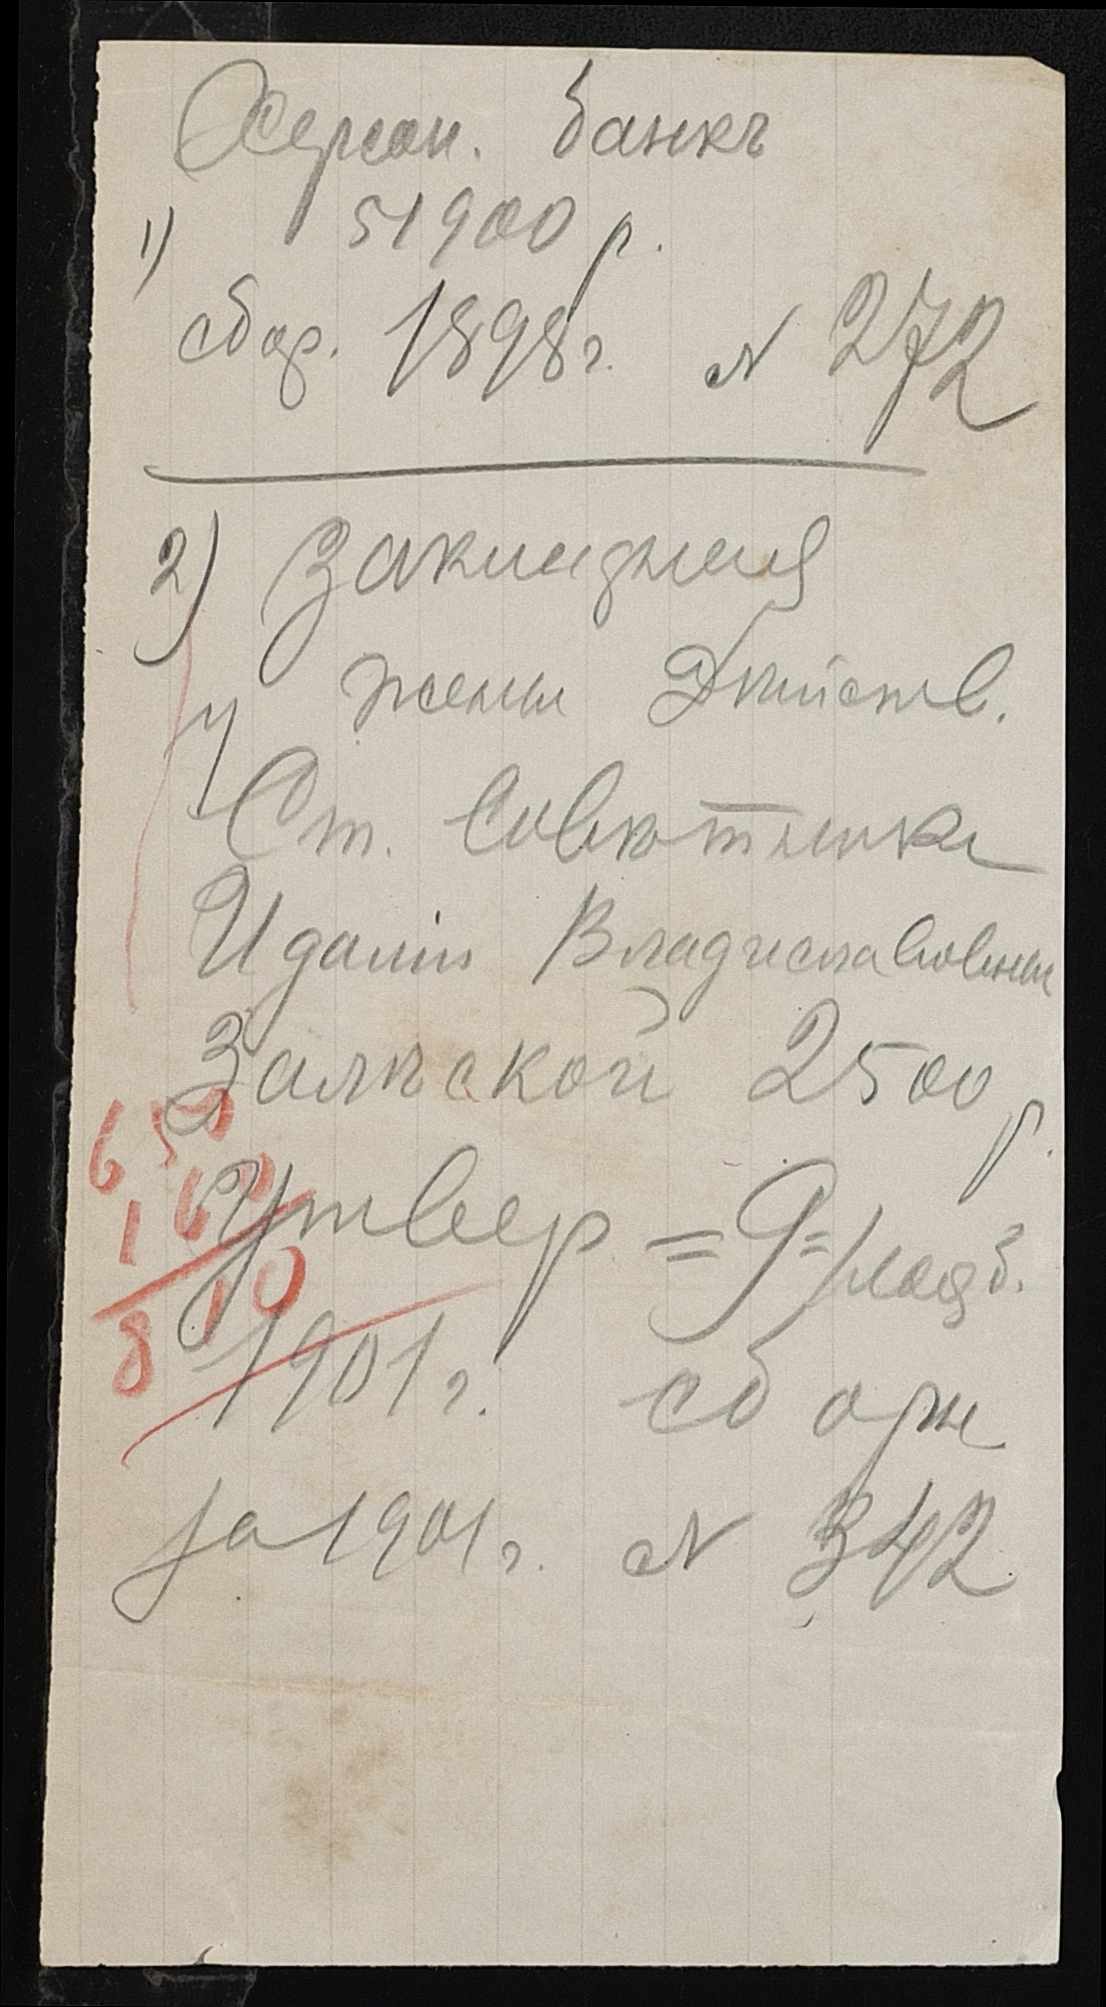 Херсон. банкъ
1) 51900 р.
сбор. 1898 г. № 272
2) Закладная
жены Дѣйств.
Ст. Совѣтника
Идаліи Владиславовны
Залѣской 2500 р.
Утвер = 9 =
1901 г. сборн
за 1901 г. № 342
650
160
810